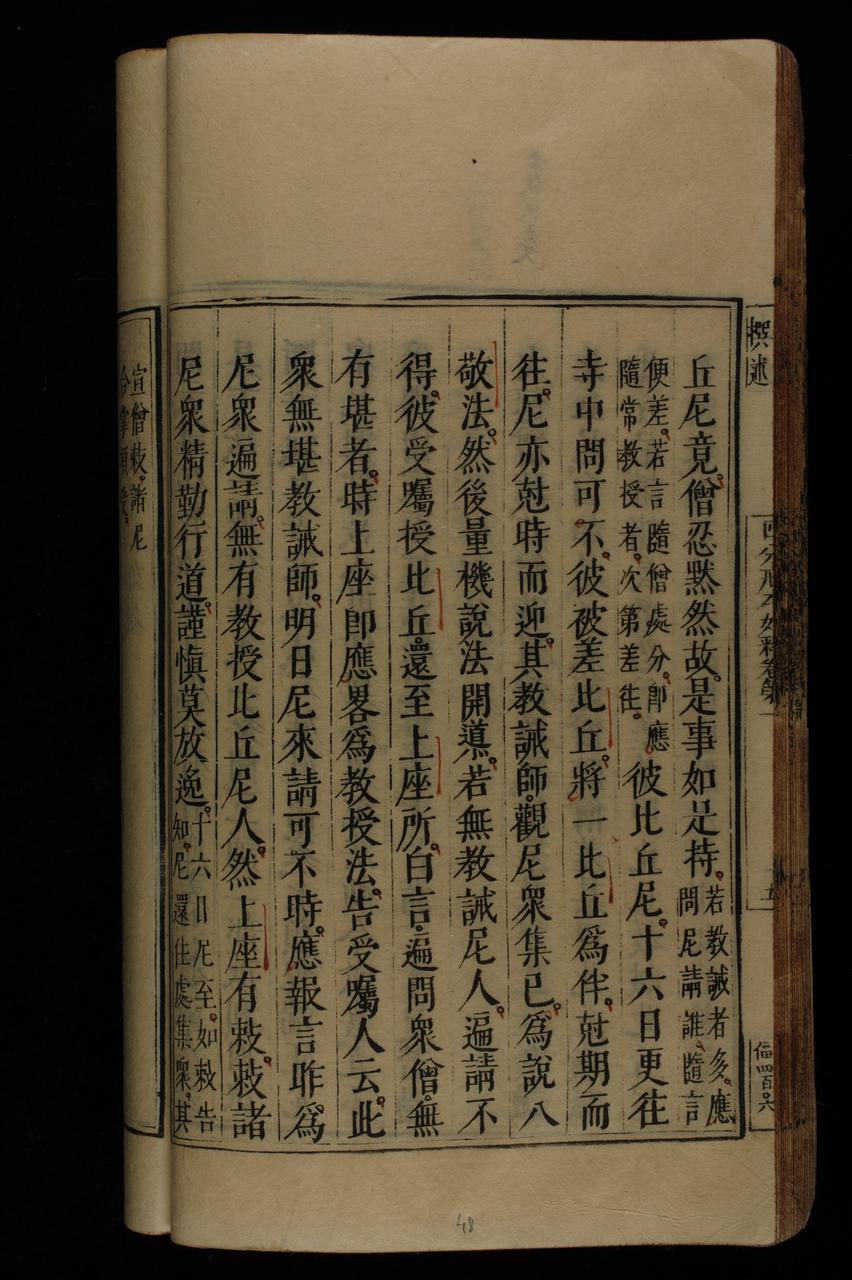 撰述
四分戒本如釋卷第一
五
偪四百六
丘尼竟僧忍默然故是事如是持若教誡者多應問尼請誰隨言
便差若言隨僧處分即應隨常教授者次第差往彼比丘尼十六日更往
寺中問可不彼被差比丘將一比丘為伴尅期而
往尼亦尅時而迎其教誡師觀尼衆集已為說八
敬法然後量機說法開導若無教誡尼人遍請不
得彼受囑授比丘還至上座所白言遍問衆僧無
有堪者時上座即應畧為教授法告受囑人云此
衆無堪教誡師明日尼來請可不時應報言昨為
尼衆遍請無有教授比丘尼人然上座有敕敕諸
尼衆精勤行道謹慎莫放逸十六日尼至如敕告知尼還住處集衆其
宣僧敕諸尼
合掌頂受
48